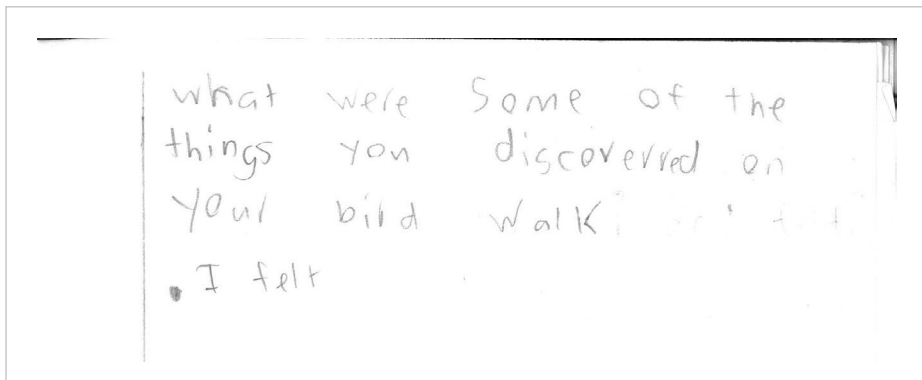 what were Some of the
things you discoverred on
your bird walk
. I felt